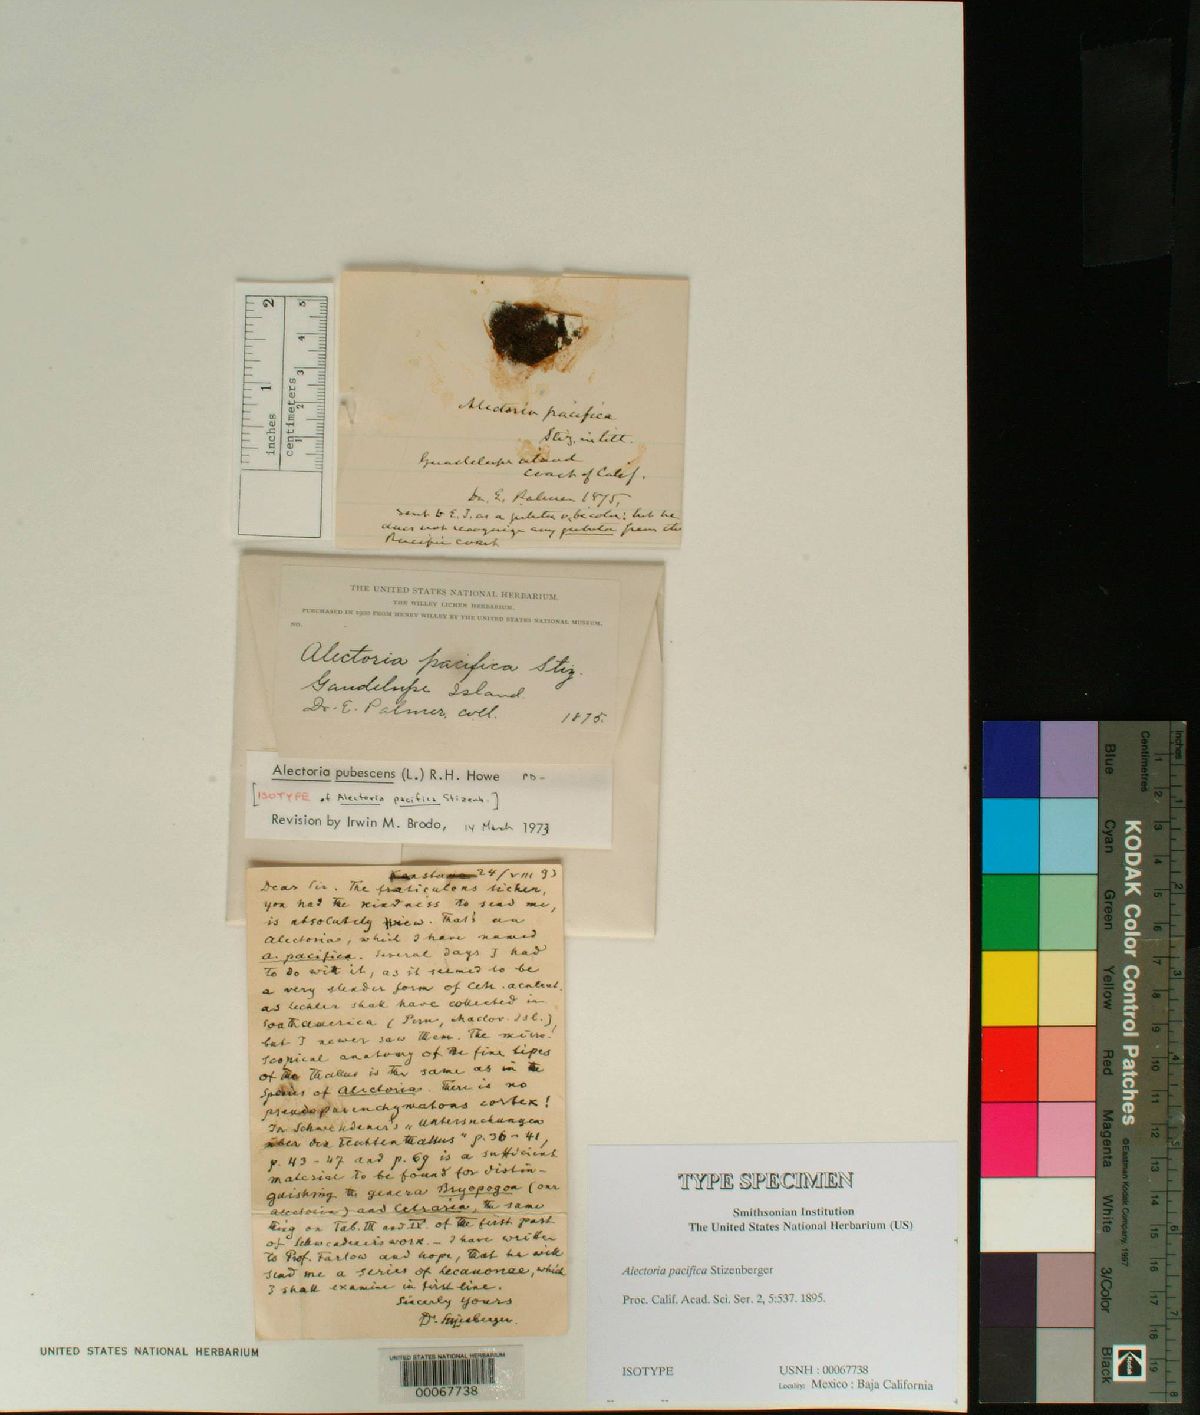 inches 1 2
centimeters 1 2 3 4 5
Alectoria pacifica
Stiz. in litt.
Guadelupe island
coast of Calif.
Dr. E. Palmer 1875.
sent to E. T. as a jubata v. bicolor; but he
does not recognize any jubata from the
Pacific coast
THE UNITED STATES NATIONAL HERBARIUM.
THE WILLEY LICHEN HERBARIUM.
PURCHASED IN 1900 FROM HENRY WILLEY BY THE UNITED STATES NATIONAL MUSEUM.
NO.
Alectoria pacifica Stiz.
Gaudelupe Island.
Dr. E. Palmer, coll. 1875.
Alectoria pubescens (L.) R.H. Howe PD-
[ISOTYPE of Alectoria pacifica Stizenb.]
Revision by Irwin M. Brodo, 14 March 1973
24/VIII 93
Dear Sir. The fruticulous lichen,
you had the kindness to send me,
is absolutely new. That's an
Alectoria, which I have named
A. pacifica. Several days I had
to do with it, as it seemed to be
a very slender form of Cetr. aculeat.
as Lechler shall have collected in
South America (Peru, Maclov. Isl.),
but I never saw them. The micro-
scopical anatomy of the fine tipes
of the thallus is the same as in the
species of Alectoria. There is no
pseudoparenchymatous cortex!
In Schwendener's "Untersuchungen
über den Flechtenthallus" p. 36-41,
p. 43-47 and p. 69 is a sufficient
material to be found for distin-
guishing the genera Bryopogon (our
Alectoria) and Cetraria, the same
thing on Tab. III and IV. of the first part
of Schwendener's work. - I have written
to Prof. Farlow and hope, that he will
send me a series of Lecanorae, which
I shall examine in first line.
Sincerly yours
Dr. Stizenberger.
UNITED STATES NATIONAL HERBARIUM
UNITED STATES NATIONAL HERBARIUM
00067738
TYPE SPECIMEN
Smithsonian Institution
The United States National Herbarium (US)
Alectoria pacifica Stizenberger
Proc. Calif. Acad. Sci. Ser. 2, 5:537. 1895.
ISOTYPE USNH : 00067738
Locality: Mexico : Baja California
KODAK Color Control Patches
©Eastman Kodak Company, 1997
Blue Cyan Green Yellow Red Magenta White 3/Color Black
Centimetres 1 2 3 4 5 6 7 8 9 10 11 12 13 14 15 16 17 18 19
Inches 1 2 3 4 5 6 7 8
Kodak